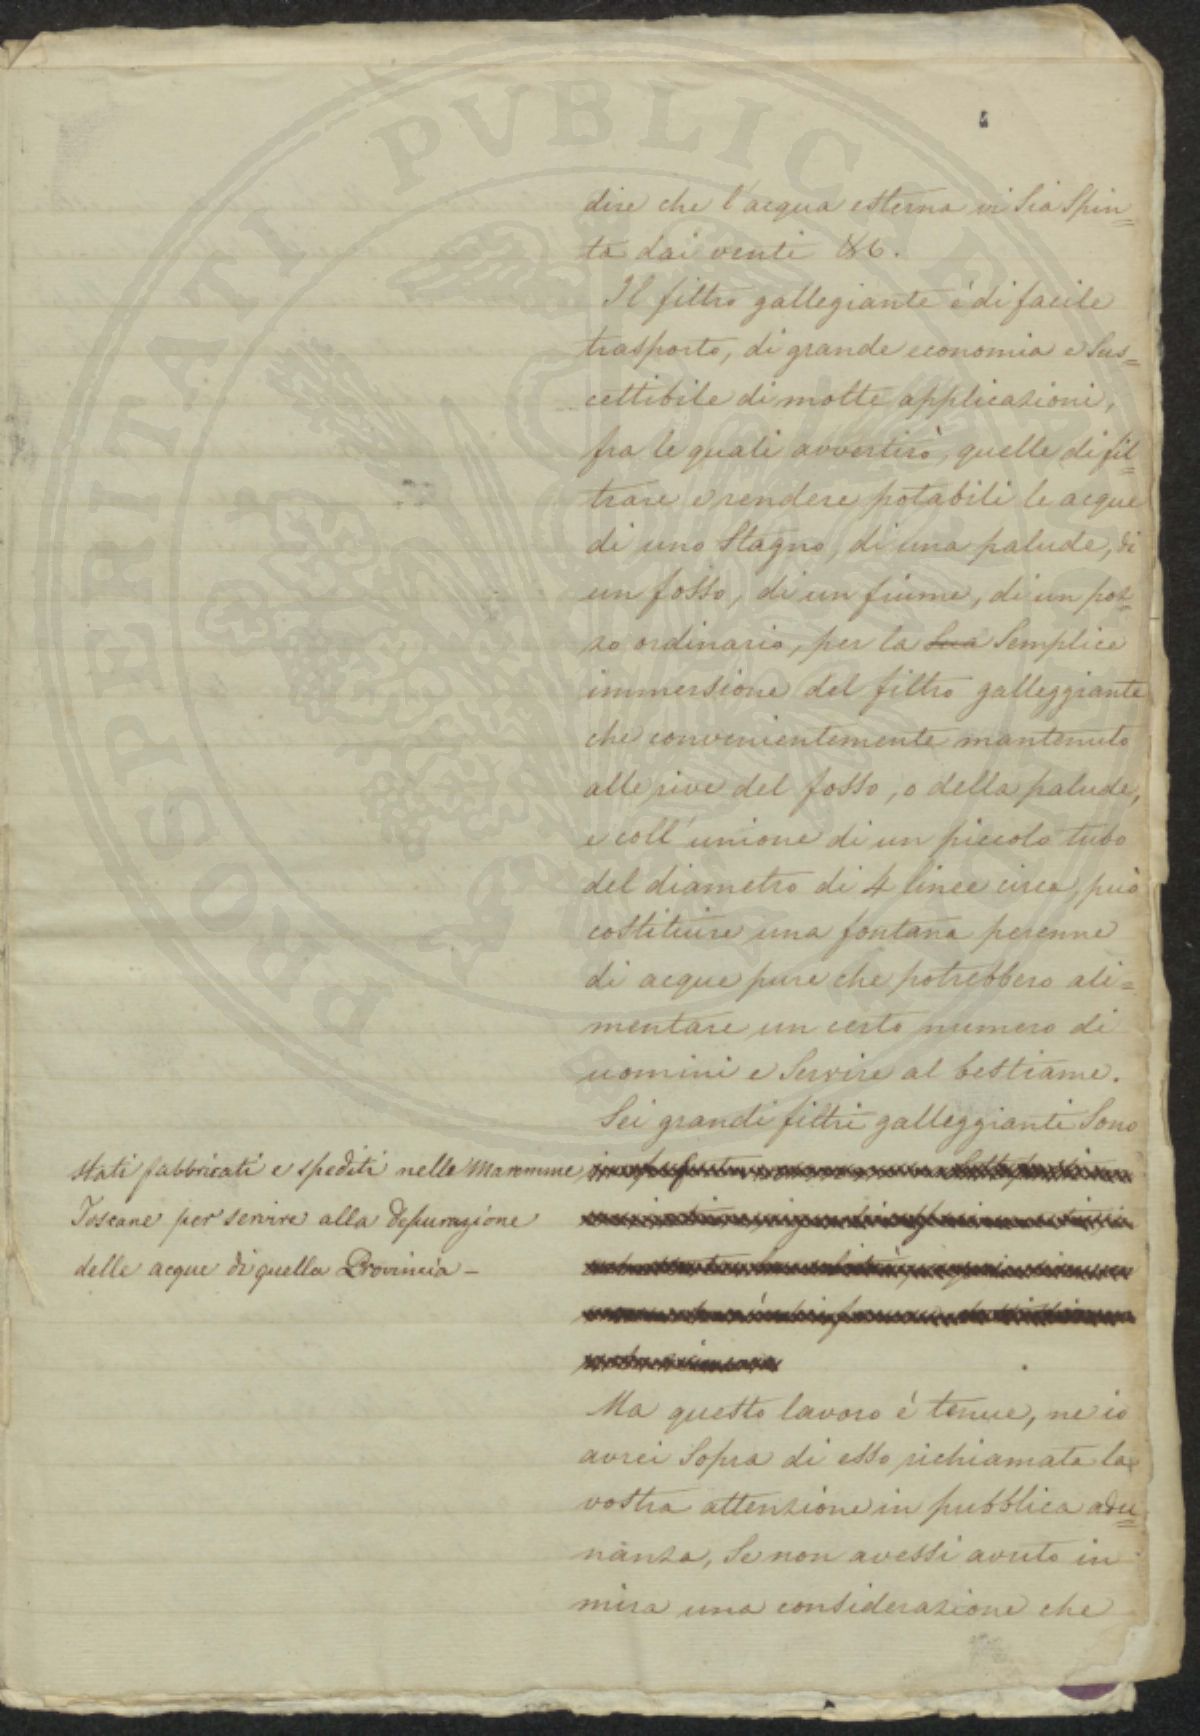 PROSPERITATI PVBLICAE
dire che l'acqua esterna vi sia spin=
ta dai venti &c.
Il filtro gallegiante é di facile
trasporto, di grande economia e sus=
cettibile di molte applicazioni,
fra le quali avvertirò, quelle di fil=
trare e rendere potabili le acque
di uno stagno, di una palude, di
un fosso, di un fiume, di un poz=
zo ordinario, per la sua semplice
immersione del filtro galleggiante
che convenientemente mantenuto
alle rive del fosso, o della palude,
e coll'unione di un piccolo tubo
del diametro di 4 linee circa, può
costituire una fontana perenne
di acque pure che potrebbero ali=
mentare un certo numero di
uomini e servire al bestiame.
Sei grandi filtri galleggianti sono
stati fabbricati e spediti nelle Maremme
Toscane per servire alla depurazione
delle acque di quella Provincia –
Ma questo lavoro é tenue, ne io
avrei sopra di esso richiamata la
vostra attenzione in pubblica adu=
nanza, se non avessi avuto in
mira una considerazione che